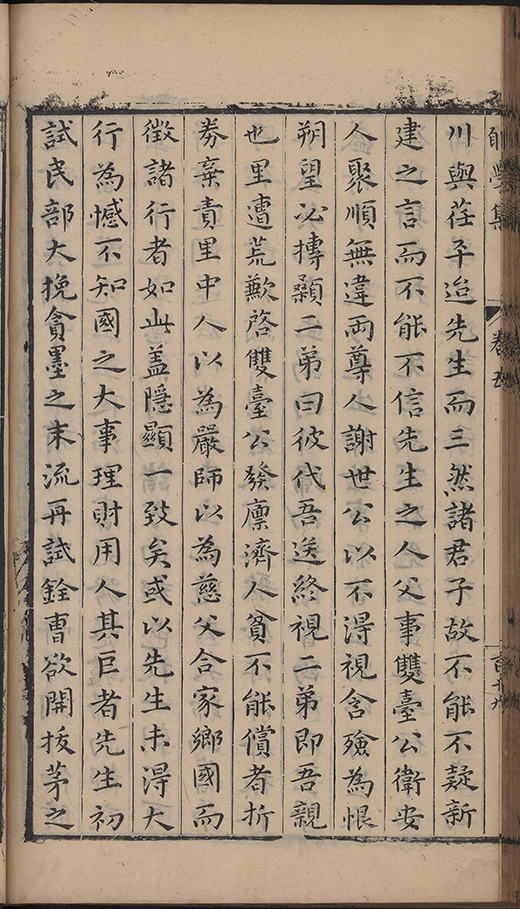 卷五
川與茌平迨先生而三然諸君子故不能不疑新
建之言而不能不信先生之人父事雙臺公衛安
人聚順無違兩尊人謝世公以不淂視含殮為恨
朔望必摶顙二弟曰彼代吾送終視二弟即吾親
也里遭荒歉啓雙臺公發廩濟人貧不能償者折
券棄責里中人以為嚴師以為慈父合家鄉國而
徵諸行者如此盖隱顯一致矣或以先生未淂大
行為憾不知國之大事理財用人其巨者先生初
試民部大挽貪墨之末流再試銓曹欲開拔茅之